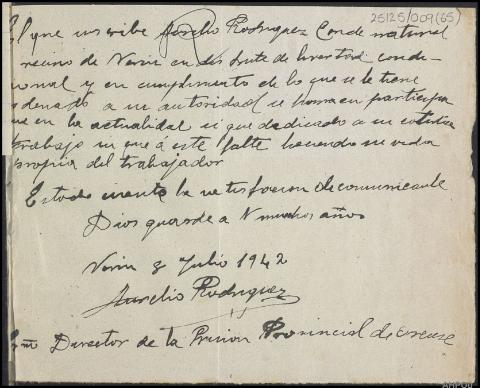 25125/009(65)
El que suscribe Aurelio Rodriguez Conde natural
vecino de Verin en disfrute de livertad condi-
cional y en cumplimento de lo que se le tiene
ordenado a su autoridad se honra en participar
que en la actualidad sigue dedicado a su cotidiano
trabajo sin que á este falte haciendo su vida
propia del trabajador
Estado cuanto la satisfacion de comunicarle
Dios guarde a V muchos años
Verin 8 Julio 1942
Aurelio Rodriguez
Director de la Prision Provincial de Orense